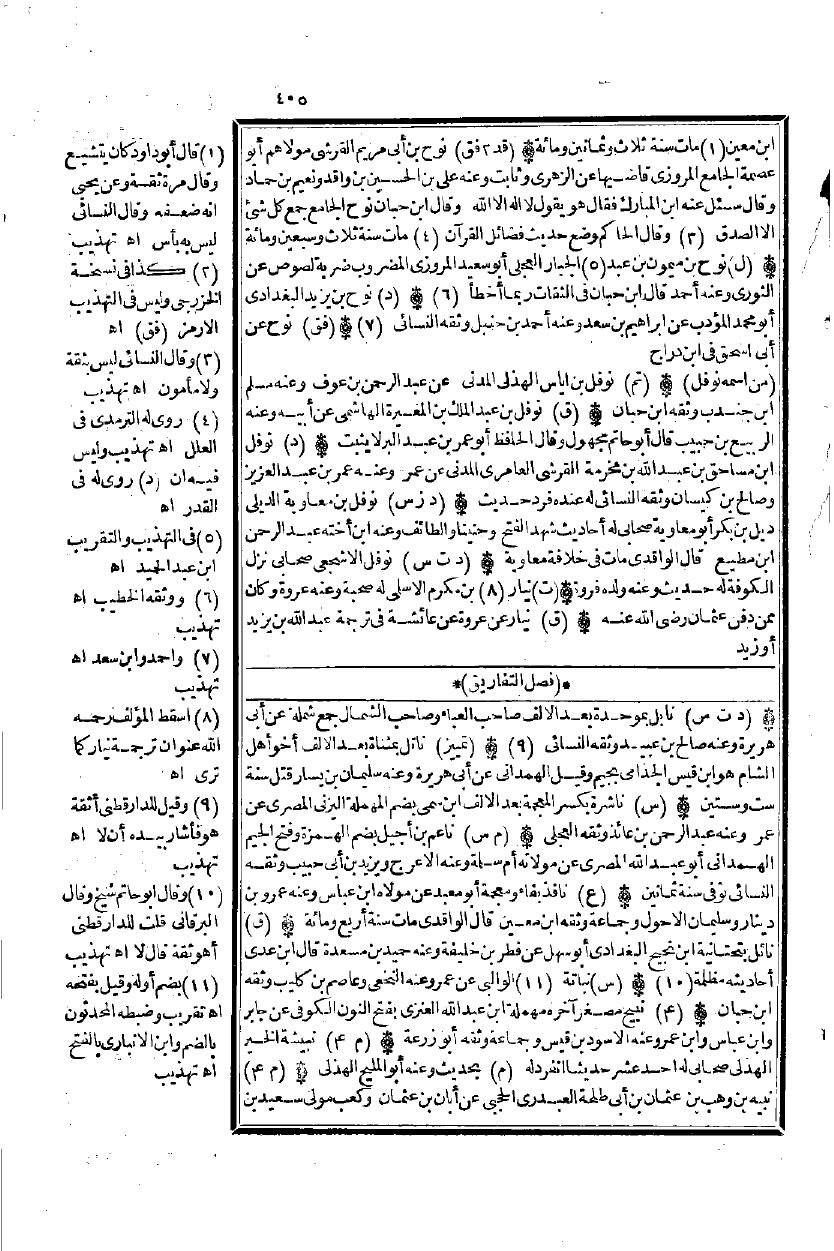 ٤٠٥
ابن معين (١) مات سنة ثلاث وثمانين ومائة ۞ (قد ٢ فق) نوح بن أبى مريم القرشى مولاهم أبو
عصمة الجامع المروزى قاضيها عن الزهرى وثابت وعنه على بن الحسين بن واقد ونعيم بن حماد
وقال سئل عنه ابن المبارك فقال هو يقول لا اله الا الله وقال ابن حبان نوح الجامع جمع كل شئ
الا الصدق (٣) وقال الحاكم وضع حديث فضائل القرآن (٤) مات سنة ثلاث وسبعين ومائة
۞ (ل) نوح بن ميمون بن عبد (٥) الجبار العجلى أبو سعيد المروزى المضروب ضربه لصوص عن
الثورى وعنه أحمد قال ابن حبان فى الثقات ربما أخطأ (٦) ۞ (د) نوح بن يزيد البغدادى
أبو محمد المؤدب عن ابراهيم بن سعد وعنه أحمد بن حنبل وثقه النسائى (٧) ۞ (فق) نوح عن
أبى اسحق فى ابن دراج
(من اسمه نوفل) ۞ (تم) نوفل بن اياس الهذلى المدنى عن عبد الرحمن بن عوف وعنه مسلم
ابن جندب وثقه ابن حبان ۞ (ق) نوفل بن عبد الملك بن المغيرة الهاشمى عن أبيه وعنه
الربيع بن حبيب قال أبو حاتم مجهول وقال الحافظ أبو عمر بن عبد البر لا يثبت ۞ (د) نوفل
ابن مساحق بن عبد الله بن مخرمة القرشى العامرى المدنى عن عمر وعنه عمر بن عبد العزيز
وصالح بن كيسان وثقه النسائى له عنده فرد حديث ۞ (د ز س) نوفل بن معاوية الديلى
ديل بن بكر أبو معاوية صحابى له أحاديث شهد الفتح وحنينا والطائف وعنه ابن أخته عبد الرحمن
ابن مطيع قال الواقدى مات فى خلافة معاوية ۞ (د ت س) نوفل الاشجعى صحابى نزل
الكوفة له حديث وعنه ولده فروة ۞ (ت) نيار (٨) بن مكرم الاسلمى له صحبة وعنه عروة وكان
ممن دفن عثمان رضى الله عنه ۞ (ق) نيار عن عروة عن عائشة فى ترجمة عبد الله بن يزيد
أو زيد
*(فصل التفاريق)*
۞ (د ت س) نابل بموحدة بعد الالف صاحب العباء وصاحب الشمال جمع شملة عن أبى
هريرة وعنه صالح بن عبيد وثقه النسائى (٩) ۞ (تمييز) ناتل بمثناة بعد الالف أخو أهل
الشام هو ابن قيس الجذامى بجيم وقيل الهمدانى عن أبى هريرة وعنه سليمان بن يسار قتل سنة
ست وستين ۞ (س) ناشرة بكسر المعجمة بعد الالف ابن سمى بضم المهملة اليزنى المصرى عن
عمر وعنه عبد الرحمن بن عائذ وثقه العجلى ۞ (م س) ناعم بن أجيل بضم الهمزة وفتح الجيم
الهمدانى أبو عبد الله المصرى عن مولاته أم سلمة وعنه الاعرج ويزيد بن أبى حبيب وثقه
النسائى توفى سنة ثمانين ۞ (ع) نافذ بفاء ومعجمة أبو معبد عن مولاه ابن عباس وعنه عمرو بن
دينار وسليمان الاحول وجماعة وثقه ابن معين قال الواقدى مات سنة أربع ومائة ۞ (ق)
نائل بتحتانية ابن نجيح البغدادى أبو سهل عن فطر بن خليفة وعنه حميد بن مسعدة قال ابن عدى
أحاديثه مظلمة (١٠) ۞ (س) نباتة (١١) الوالبى عن عمر وعنه النخعى وعاصم بن كليب وثقه
ابن حبان ۞ (٤) نبيح مصغر آخره مهملة ابن عبد الله العنزى بفتح النون الكوفى عن جابر
وابن عباس وابن عمر وعنه الاسود بن قيس وجماعة وثقه أبو زرعة ۞ (م ٤) نبيشة الخير
الهذلى صحابى له احد عشر حديثا انفرد له (م) بحديث وعنه أبو المليح الهذلى ۞ (م ٤)
نبيه بن وهب بن عثمان بن أبى طلحة العبدرى الحجبى عن أبان بن عثمان وكعب مولى سعيد بن
(١) قال أبو داود كان يتشيع
وقال مرة ثقة وعن يحيى
انه ضعفه وقال النسائى
ليس به بأس اه تهذيب
(٢) كذا فى نسخة
الخزرجى وليس فى التهذيب
الا رمز (فق) اه
(٣) وقال النسائى ليس بثقة
ولا مأمون اه تهذيب
(٤) روى له الترمذى فى
العلل اه تهذيب وليس
فيه ان (د) روى له فى
القدر اه
(٥) فى التهذيب والتقريب
ابن عبد الحميد اه
(٦) ووثقه الخطيب اه
تهذيب
(٧) واحمد وابن سعد اه
تهذيب
(٨) اسقط المؤلف رحمه
الله عنوان ترجمة نيار كما
ترى اه
(٩) وقيل للدارقطنى أثقة
هو فأشار بيده أن لا اه
تهذيب
(١٠) وقال ابو حاتم شيخ وقال
البرقانى قلت للدارقطنى
أهو ثقة قال لا اه تهذيب
(١١) بضم أوله وقيل بفتحه
اه تقريب وضبطه المحدثون
بالضم وابن الانبارى بالفتح
اه تهذيب